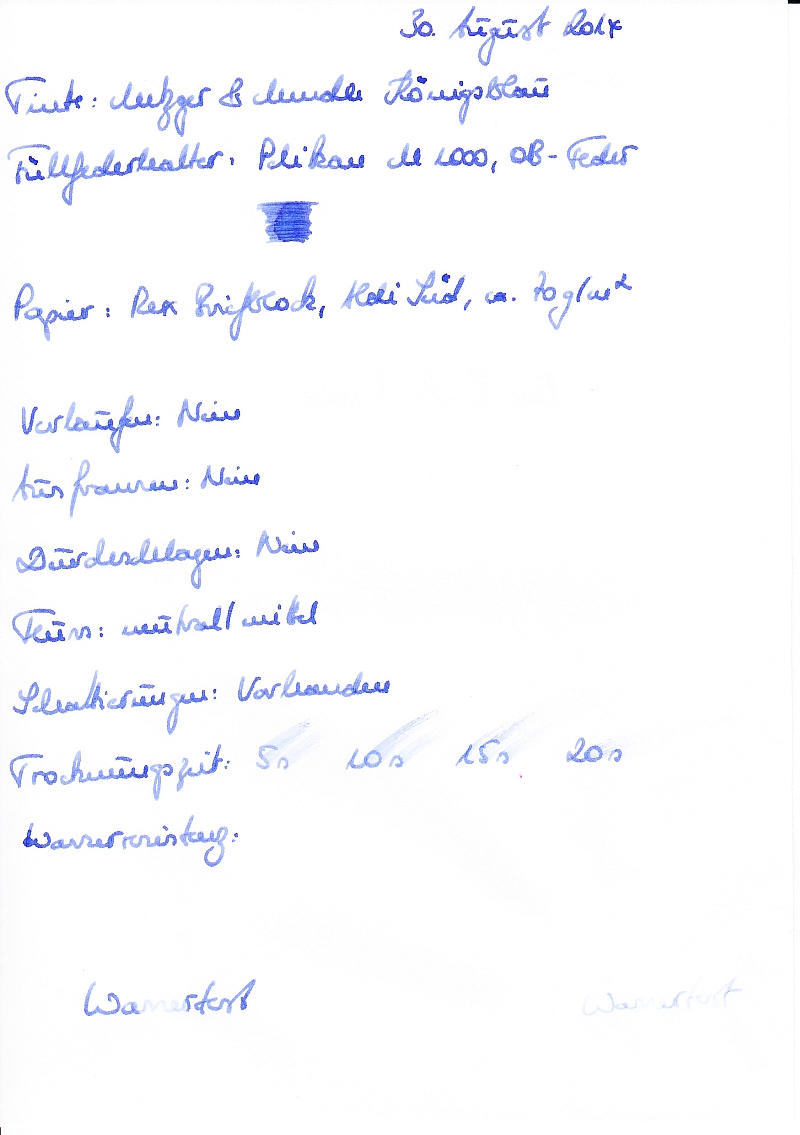 30. August 2014
Tinte: Metzger & Mendle Königsblau
Füllfederhalter: Pelikan M 1000, OB-Feder
Papier: Rex Briefblock, Aldi Süd, ca. 70g/m²
Verlaufen: Nein
Ausfransen: Nein
Durchschlagen: Nein
Fluss: neutral/mittel
Schattierungen: Vorhanden
Trocknungszeit: 5s 10s 15s 20s
Wasserresistenz:
Wassertest Wassertest